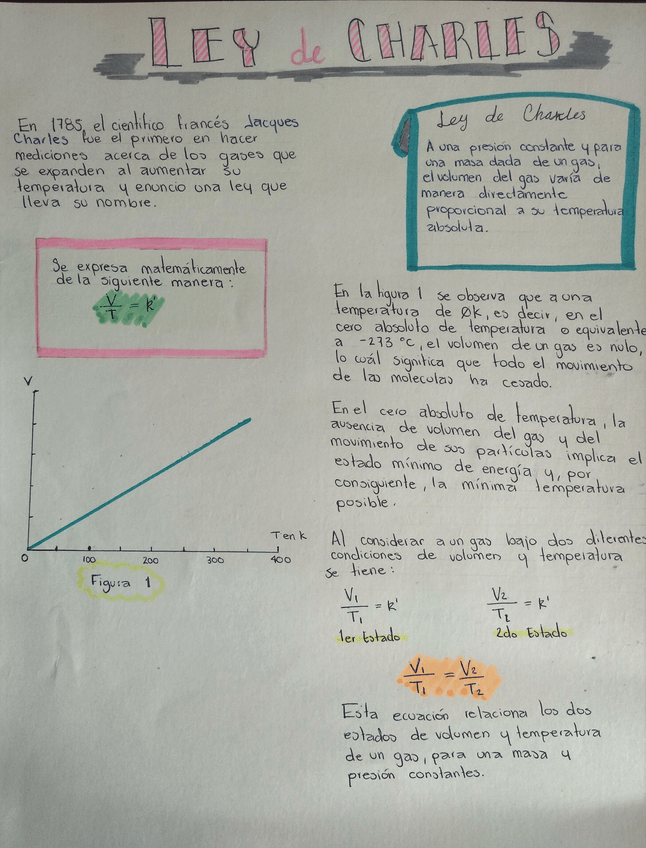 LEY de CHARLES
En 1785, el científico francés Jacques
Charles fue el primero en hacer
mediciones acerca de los gases que
se expanden al aumentar su
temperatura y enuncio una ley que
lleva su nombre.
Ley de Charles
A una presión constante y para
una masa dada de un gas,
el volumen del gas varía de
manera directamente
proporcional a su temperatura
absoluta.
Se expresa matemáticamente
de la siguiente manera:
V/T = k'
V
T en k
0 100 200 300 400
Figura 1
En la figura 1 se observa que a una
temperatura de 0k, es decir, en el
cero absoluto de temperatura o equivalente
a -273 °C, el volumen de un gas es nulo,
lo cuál significa que todo el movimiento
de las moleculas ha cesado.
En el cero absoluto de temperatura, la
ausencia de volumen del gas y del
movimiento de sus partículas implica el
estado mínimo de energía y, por
consiguiente, la mínima temperatura
posible.
Al considerar a un gas bajo dos diferentes
condiciones de volumen y temperatura
se tiene:
V₁/T₁ = k' V₂/T₂ = k'
1er Estado 2do Estado
V₁/T₁ = V₂/T₂
Esta ecuación relaciona los dos
estados de volumen y temperatura
de un gas, para una masa y
presión constantes.